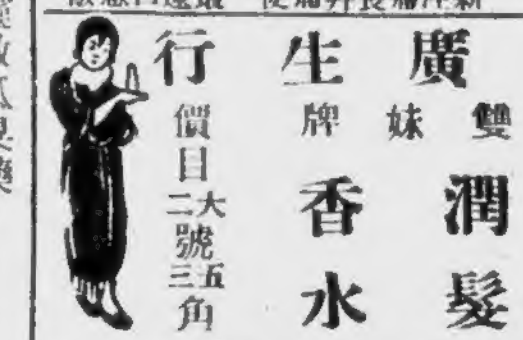 廣生行
雙妹牌
潤髮
香水
價目大二號五三角